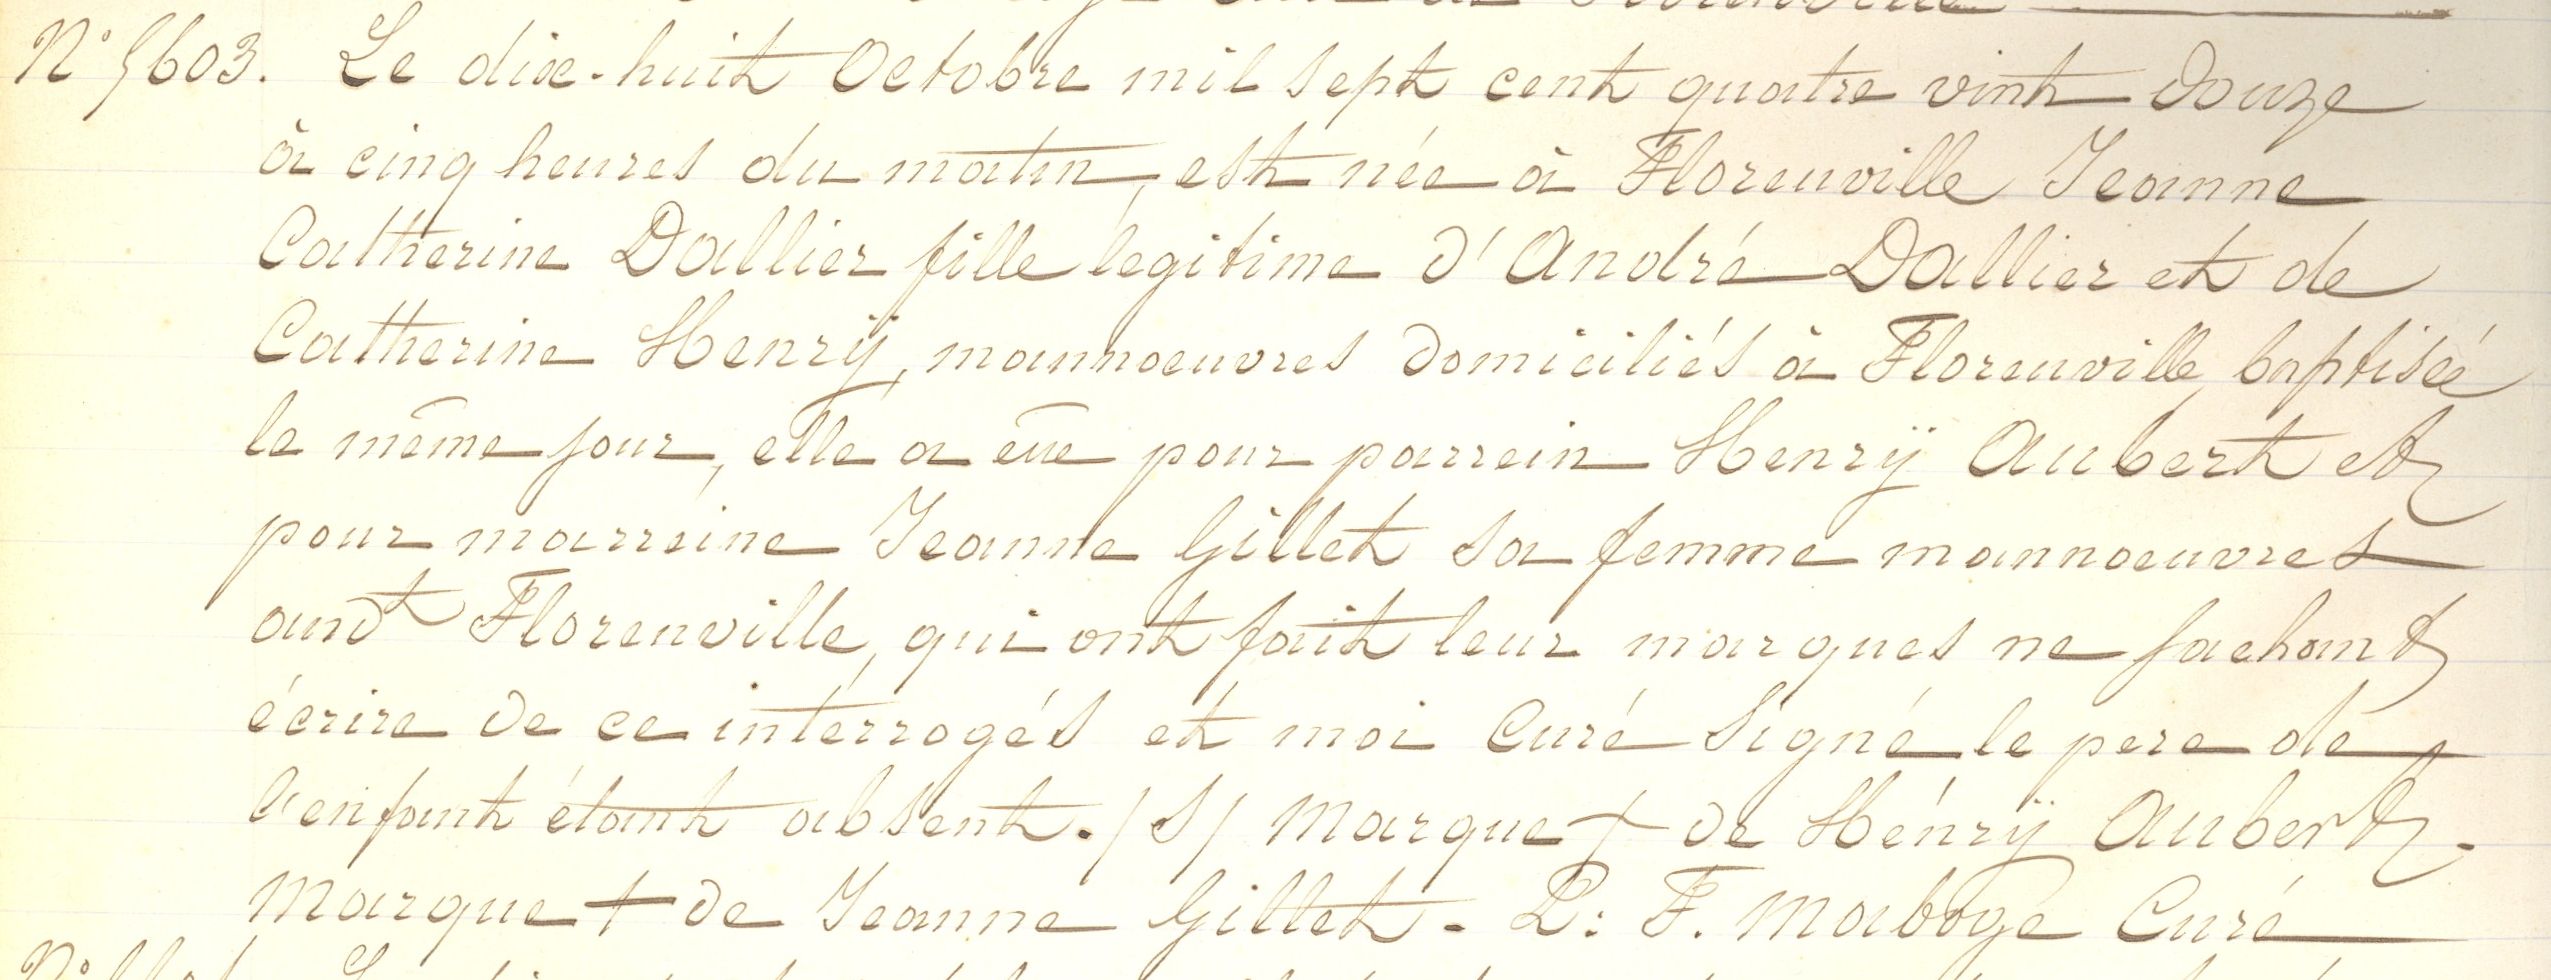 Florenville
N° 5603. Le dix-huit Octobre mil sept cent quatre vint douze
à cinq heures du matin, est née à Florenville Jeanne
Catherine Dallier fille legitime d'André Dallier et de
Catherine Henrÿ, mannoeuvres domiciliés à Florenville, baptiseé
le même jour, elle a eue pour parrein Henrÿ Aubert et
pour marreine Jeanne Gillet sa femme mannoeuvres
audt Florenville, qui ont fait leur marques ne sachant
écrire de ce interrogés et moi Curé Signé le pere de
l'enfant étant absent. /S/ Marque + de Hénrÿ Aubert.
Marque + de Jeanne Gillet. P: F. Maboge Curé